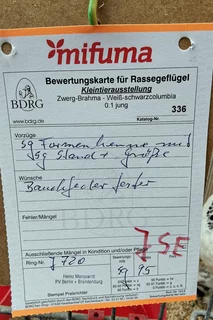 mifuma
Bewertungskarte für Rassegeflügel
Kleintierausstellung
Zwerg-Brahma - Weiß-schwarzcolumbia
0.1 jung
BDRG
www.bdrg.de
336
Katalog-Nr.
Vorzüge
sg Formenhenne mit
sg Stand + Größe
Wünsche
Bauchfeder fester
Fehler/Mängel
Ausschließende Mängel in Kondition und/oder Pflege
7 SE
Ring-Nr.
J 720
Bewertungs-note
sg 95
Heinz Marquard
PV Berlin + Brandenburg
Stempel Preisrichter